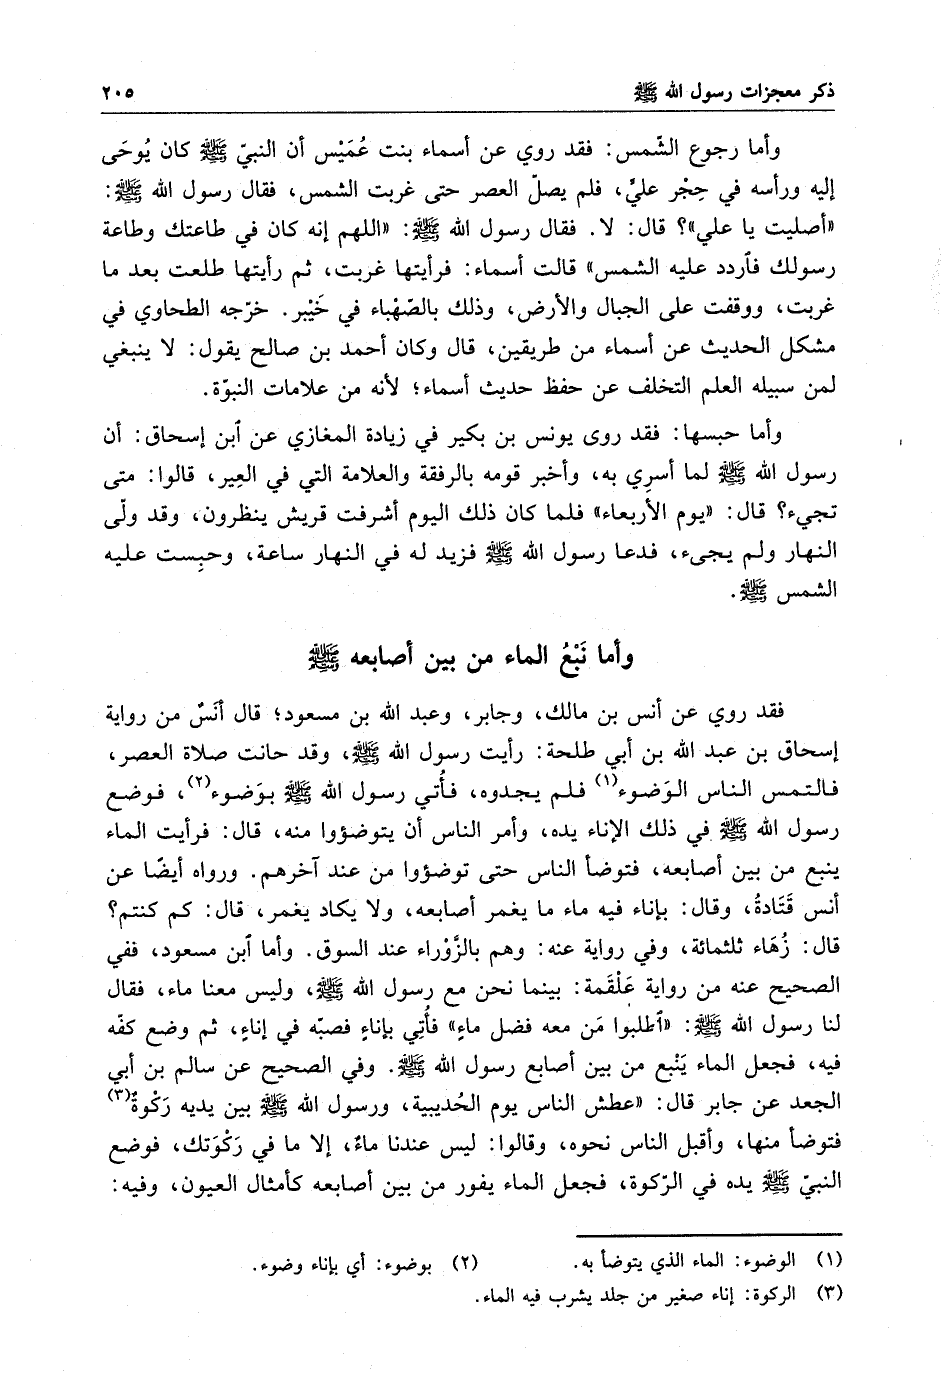 ذكر معجزات رسول الله ﷺ ٢٠٥
وأما رجوع الشّمس: فقد روي عن أسماء بنت عُمَيْس أن النبيّ ﷺ كان يُوحَى
إليه ورأسه في حِجْر عليٍّ، فلم يصلّ العصر حتى غربت الشمس، فقال رسول الله ﷺ:
«أصليت يا علي»؟ قال: لا. فقال رسول الله ﷺ: «اللهم إنه كان في طاعتك وطاعة
رسولك فٱردد عليه الشمس» قالت أسماء: فرأيتها غربت، ثم رأيتها طلعت بعد ما
غربت، ووقفت على الجبال والأرض، وذلك بالصّهْباء في خَيْبر. خرّجه الطحاوي في
مشكل الحديث عن أسماء من طريقين، قال وكان أحمد بن صالح يقول: لا ينبغي
لمن سبيله العلم التخلف عن حفظ حديث أسماء؛ لأنه من علامات النبوّة.
وأما حبسها: فقد روى يونس بن بكير في زيادة المغازي عن ٱبن إسحاق: أن
رسول الله ﷺ لما أسرِي به، وأخبر قومه بالرفقة والعلامة التي في العِير، قالوا: متى
تجيء؟ قال: «يوم الأربعاء» فلما كان ذلك اليوم أشرفت قريش ينظرون، وقد ولّى
النهار ولم يجيء، فدعا رسول الله ﷺ فزيد له في النهار ساعة، وحبِست عليه
الشمس ﷺ.
وأما نَبْعُ الماء من بين أصابعه ﷺ
فقد روي عن أنس بن مالك، وجابر، وعبد الله بن مسعود؛ قال أنَسٌ من رواية
إسحاق بن عبد الله بن أبي طلحة: رأيت رسول الله ﷺ، وقد حانت صلاة العصر،
فالتمس الناس الوَضوء(١) فلم يجدوه، فأُتي رسول الله ﷺ بوَضوء(٢)، فوضع
رسول الله ﷺ في ذلك الإناء يده، وأمر الناس أن يتوضؤوا منه، قال: فرأيت الماء
ينبع من بين أصابعه، فتوضأ الناس حتى توضؤوا من عند آخرهم. ورواه أيضًا عن
أنس قَتَادةُ، وقال: بإناء فيه ماء ما يغمر أصابعه، ولا يكاد يغمر، قال: كم كنتم؟
قال: زُهَاء ثلثمائة، وفي رواية عنه: وهم بالزَّوْراء عند السوق. وأما ٱبن مسعود، ففي
الصحيح عنه من رواية عَلْقَمة: بينما نحن مع رسول الله ﷺ، وليس معنا ماء، فقال
لنا رسول الله ﷺ: «ٱطلبوا مَن معه فضل ماءٍ» فأُتِي بإناءٍ فصبّه في إناءٍ، ثم وضع كفّه
فيه، فجعل الماء يَنْبع من بين أصابع رسول الله ﷺ. وفي الصحيح عن سالم بن أبي
الجعد عن جابر قال: «عطش الناس يوم الحُديبية، ورسول الله ﷺ بين يديه رَكْوةٌ(٣)
فتوضأ منها، وأقبل الناس نحوه، وقالوا: ليس عندنا ماءٌ، إلا ما في رَكْوَتك، فوضع
النبيّ ﷺ يده في الرّكوة، فجعل الماء يفور من بين أصابعه كأمثال العيون، وفيه:
(١) الوضوء: الماء الذي يتوضأ به. (٢) بوضوء: أي بإناء وضوء.
(٣) الركوة: إناء صغير من جلد يشرب فيه الماء.